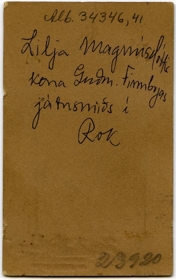 Alb. 34346,41
Lilja Magnúsdóttir
kona Guðm. Finnbogas
járnsmiðs í
Rvk
2/3920